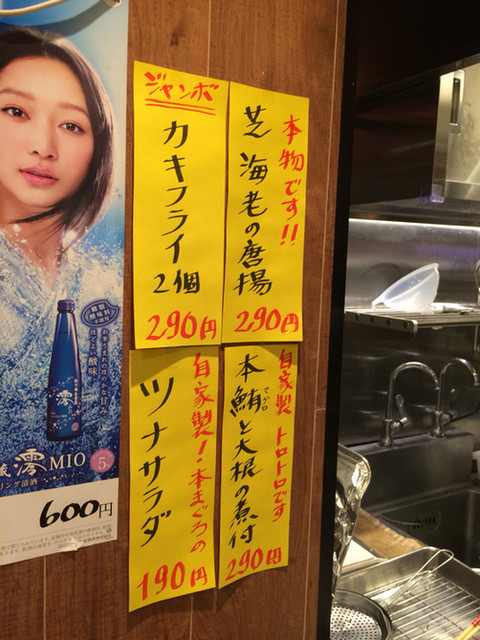 本物です!!
芝海老の唐揚
290円
ジャンボ
カキフライ
2個
290円
自家製トロトロです
本鮪と大根の煮付
マグロ
290円
自家製!本まぐろの
ツナサラダ
190円
澪 MIO 5
リング清酒
600円